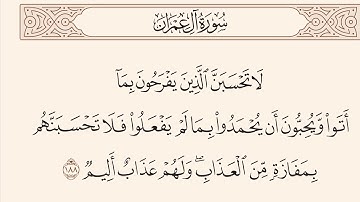 سُورَةُ آلِ عِمْرَان
لَا تَحْسَبَنَّ ٱلَّذِينَ يَفْرَحُونَ بِمَآ
أَتَوا۟ وَّيُحِبُّونَ أَن يُحْمَدُوا۟ بِمَا لَمْ يَفْعَلُوا۟ فَلَا تَحْسَبَنَّهُم
بِمَفَازَةٍ مِّنَ ٱلْعَذَابِ ۖ وَلَهُمْ عَذَابٌ أَلِيمٌ ١٨٨